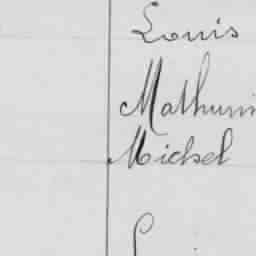 Louis
Mathurin
Michel